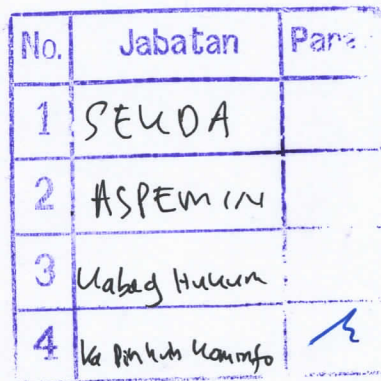 No. Jabatan Para
1 SEKDA
2 ASPEMIN
3 Kabag Hukum
4 Ka Dinhub Kominfo